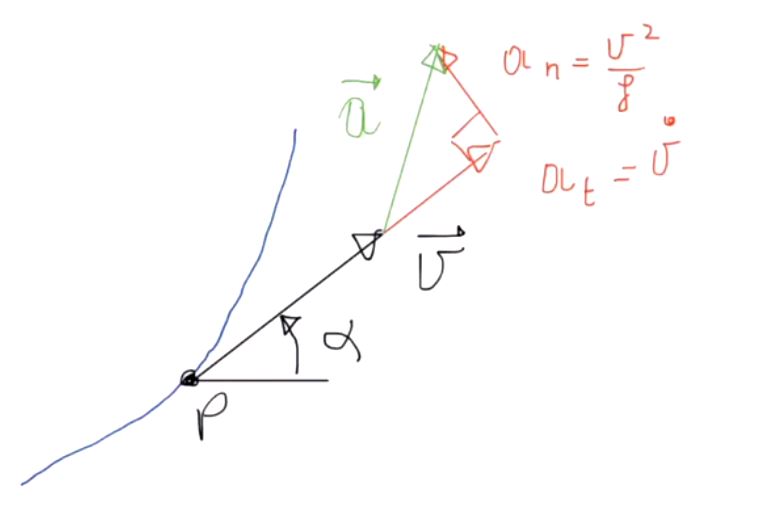 a⃗
aₙ = v²/ρ
aₜ = v̇
v⃗
α
P